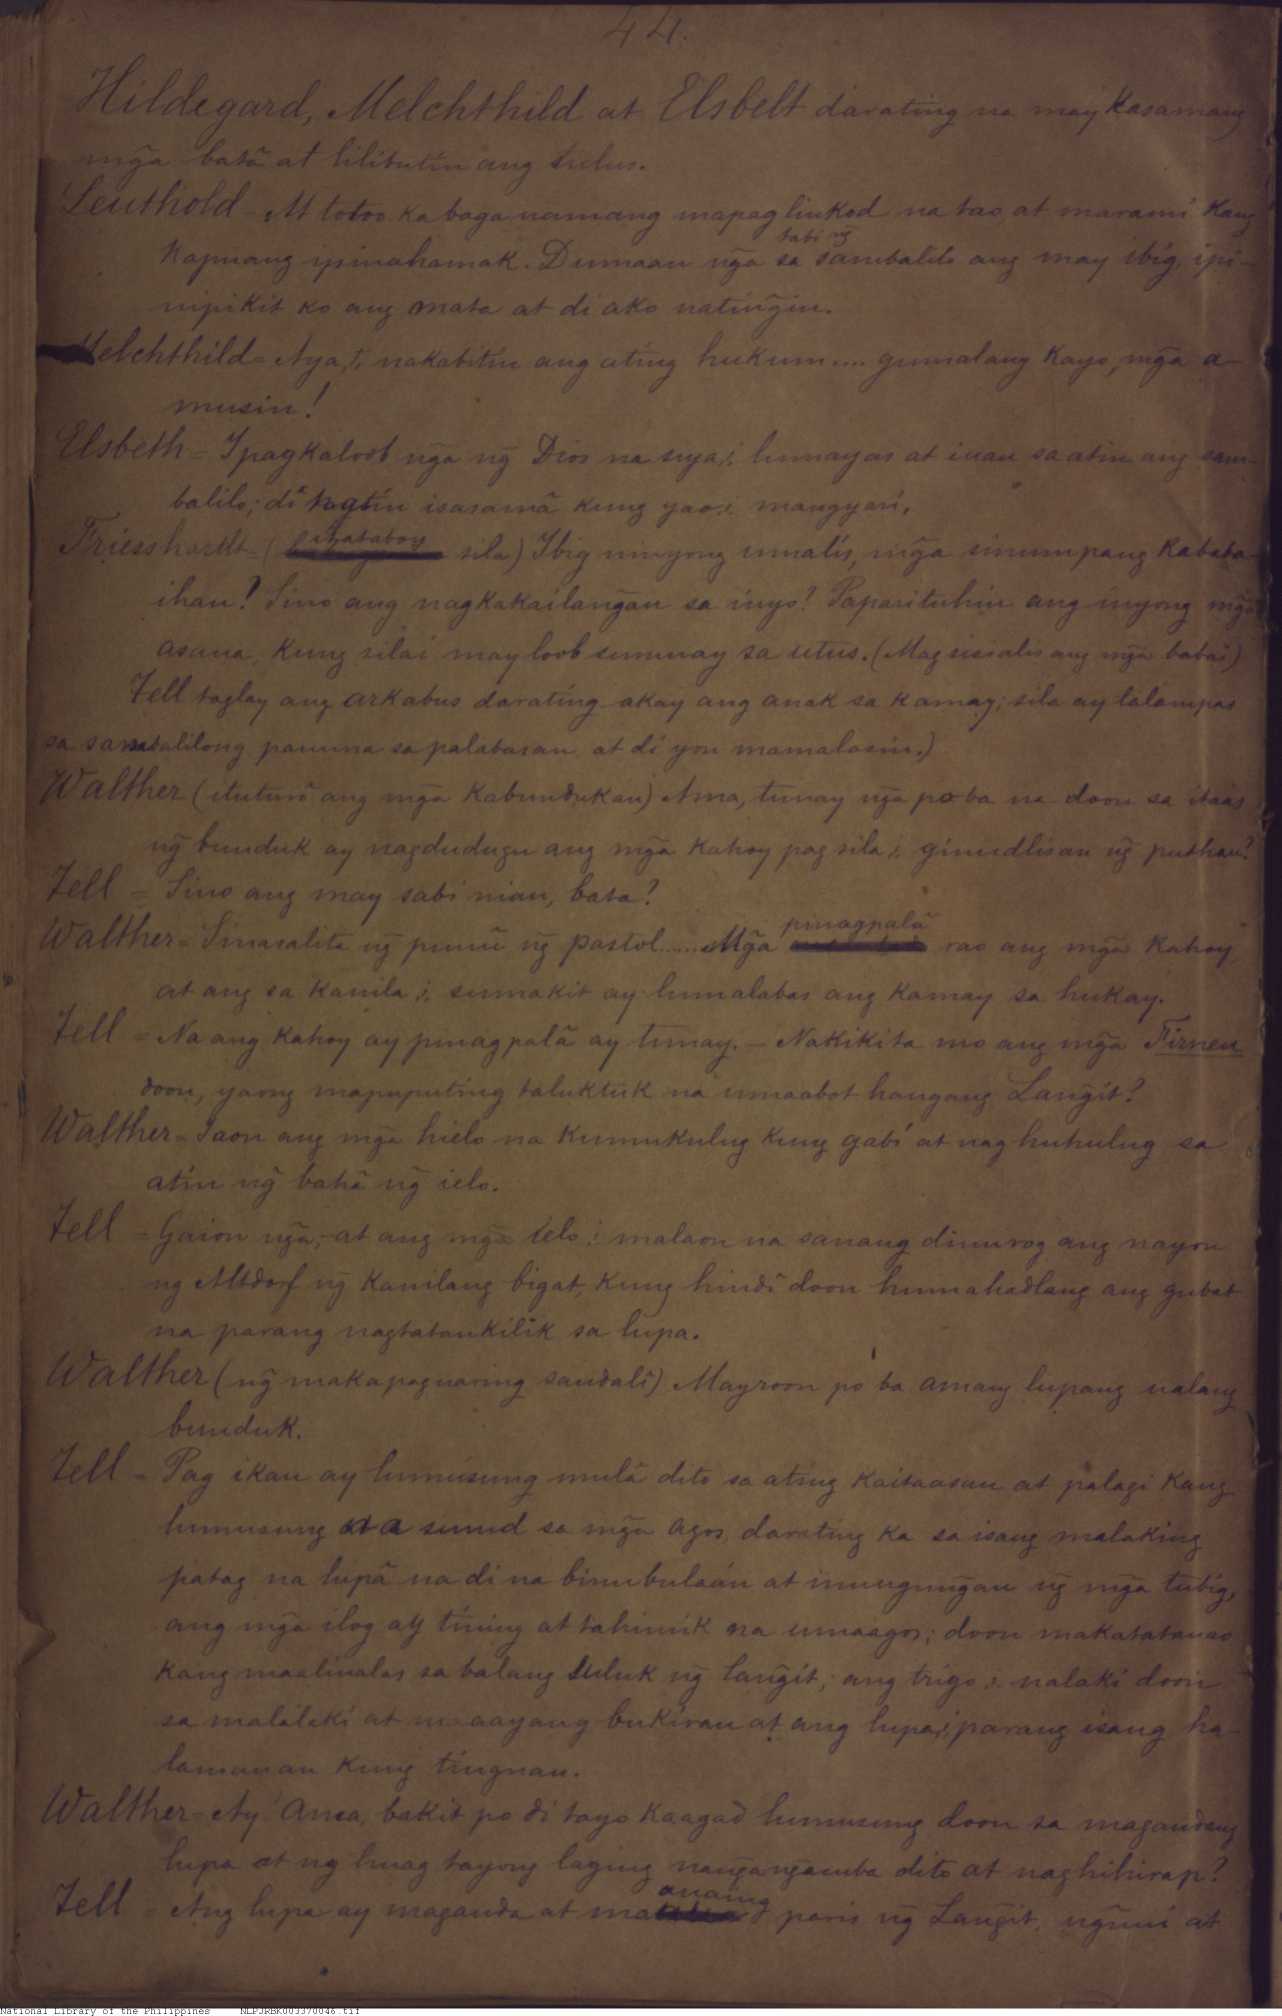 44.
Hildegard, Melchthild at Elsbelt darating na may kasamang
mg̃a batâ at lilibutin ang tulus.
Leuthold = At totoo ka baga namang mapaglinkod na tao at marami kang
kapuang ipinahamak. Dumaan ng̃a sa tabi ng̃ sambalilo ang may ibig, ipi-
nipikit ko ang mata at di ako natiñgin.
Melchthild = Aya,t, nakabitin ang ating hukum.... gumalang kayo, mg̃a a-
musin!
Elsbeth = Ipagkaloob ng̃a ng̃ Dios na siya,i, lumayas at iuan sa atin ang sam-
balilo; di natin isasamâ kung yao,i, mangyari.
Friesshardt = ( itataboy sila) Ibig ninyong umalis, mg̃a sinumpang kababa-
ihan? Sino ang nagkakailang̃an sa inyo? Paparituhin ang inyong mg̃a
asaua, kung sila,i may loob sumuay sa utus. (Magsisialis ang mg̃a babai)
Tell taglay ang arkabus darating akay ang anak sa kamay; sila ay lalampas
sa sambalilong pauuna sa palabasan at di yon mamalasin.)
Walther (ituturô ang mg̃a kabundukan) Ama, tunay ng̃a po ba na doon sa itaas
ng̃ bunduk ay nagdudugu ang mg̃a kahoy pag sila,i, ginudlisan ng̃ puthau?
Tell = Sino ang may sabi nian, bata?
Walther = Sinasalita ng̃ punû ng̃ pastol...... Mg̃a pinagpalâ rao ang mg̃a kahoy
at ang sa kanila,i, sumakit ay lumalabas ang kamay sa hukay.
Tell = Na ang kahoy ay pinagpalâ ay tunay. - Nakikita mo ang mg̃a Firnen
doon, yaong mapuputing taluktuk na umaabot hangang Lang̃it?
Walther = Iaon ang mg̃a hielo na kumukulug kung gabi at naghuhulug sa
atin ng̃ bahâ ng̃ ielo.
Tell = Gaion ng̃a; at ang mg̃a ielo,i malaon na sanang dinurog ang nayon
ng Altdorf ng̃ kanilang bigat, kung hindî doon humahadlang ang gubat
na parang nagtatankilik sa lupa.
Walther (ng̃ makapagnaring sandalî) Mayroon po ba amang lupang ualang
bunduk.
Tell = Pag ikau ay lumusung mulâ dito sa ating kaitaasan at palagi kang
lumusung na sunud sa mg̃a agos, darating ka sa isang malaking
patag na lupâ na di na binubulaán at inuugung̃an ng̃ mg̃a tubig,
ang mg̃a ilog ay tining at tahimik na umaagos; doon makatatanao
kang maalinalas sa balang suluk ng̃ lang̃it; ang trigo,i, nalaki doon
sa malalaki at maaayang bukiran at ang lupa,i, parang isang ha-
lamanan kung tingnan.
Walther = Ay! Ama, bakit po di tayo kaagad lumusung doon sa magandang
lupa at ng huag tayong laging nang̃ang̃amba dito at naghihirap?
Tell = Ang lupa ay maganda at maauaing paris ng̃ Lang̃it, ng̃uni at
National Library of the Philippines NLPJRBK003370046.tif